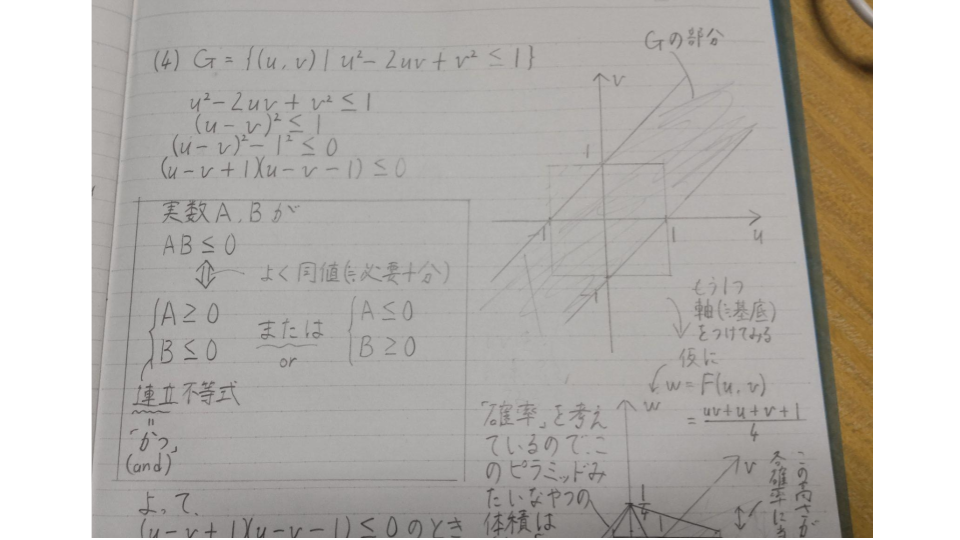 (4) G = {(u, v) | u² - 2uv + v² ≤ 1}
u² - 2uv + v² ≤ 1
(u - v)² ≤ 1
(u - v)² - 1² ≤ 0
(u - v + 1)(u - v - 1) ≤ 0
実数A, Bが
AB ≤ 0
⇕ よく同値(≒必要十分)
{A ≥ 0 または {A ≤ 0
{B ≤ 0 or {B ≥ 0
連立不等式
"
「かつ」
(and)
よって、
(u - v + 1)(u - v - 1) ≤ 0 のとき
Gの部分
v
1
-1
1
u
-1
もう1つ
軸(≒基底)
をつけてみる
仮に
w = F(u, v)
= (uv + u + v + 1)/4
「確率」を考え
ているので、こ
のピラミッドみ
たいなやつの
体積は
w
v
1/4
1
この高さが
確率に